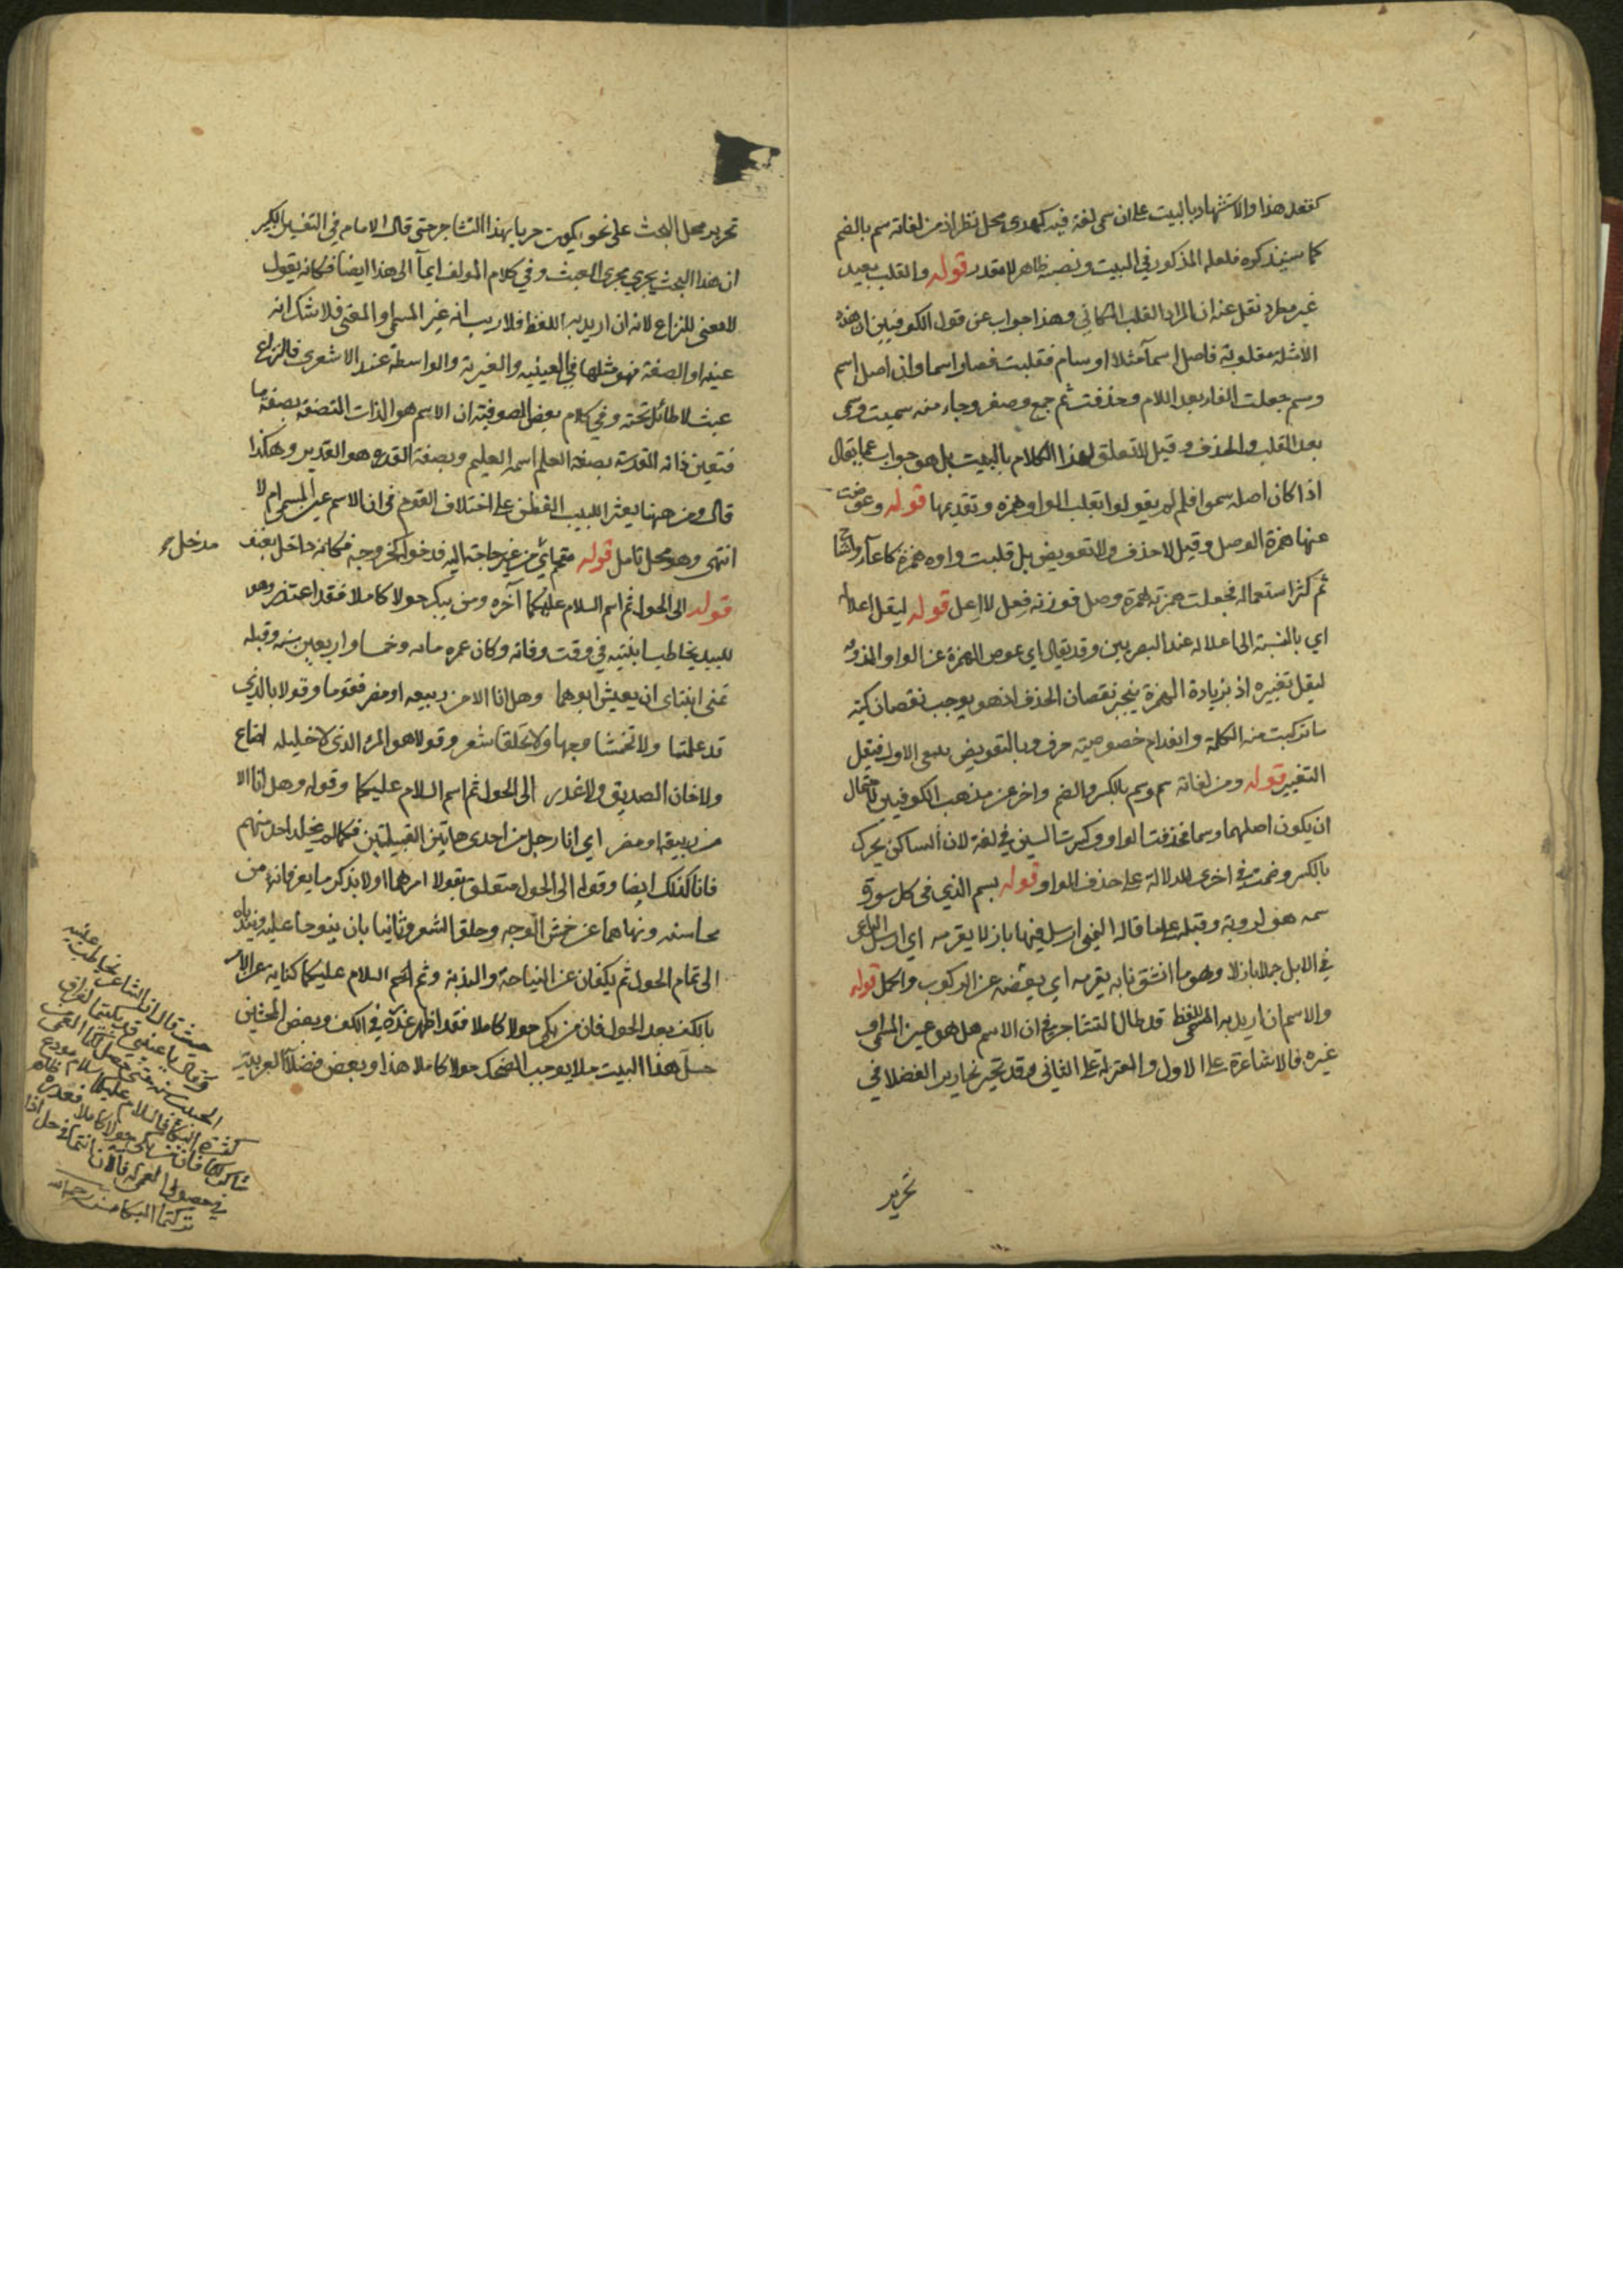 كقفل هذا والاستشهاد بالبيت على ان سمى لغة فيه كهدى محل نظر اذ من لغاته سم بالضم
كما سيذكره فلعله المذكور في البيت ونصبه ظاهر لا مقدر قوله والقلب بعيد
غير مطرد نقل عنه ان المراد القلب المكاني وهذا جواب عن قول الكوفيين ان هذه
الامثلة مقلوبة فاصل اسما مثلا اوسام فقلبت فصار اسما وان اصل اسم
وسم جعلت الفاء بعد اللام وحذفت ثم جمع وصغر وجاء منه سميت وسمى
بعد القلب والحذف وقيل لا تعلق لهذا الكلام بالبيت بل هو جواب عما يقال
اذا كان اصله سموا فلم لم يقولوا بقلب الواو همزة وتقديمها قوله وعوضت
عنها همزة الوصل وقيل لا حذف ولا تعويض بل قلبت واوه همزة كاعاء واشاح
ثم كثر استعماله فجعلت همزته همزة وصل فوزنه فعل لا اعل قوله ليقل اعلاله
اي بالنسبة الى اعلاله عند البصريين وقد يقال اي عوض الهمزة عن الواو المحذوفة
ليقل تغييره اذ بزيادة الهمزة ينجبر نقصان الحذف اذ هو يوجب نقصان كمية
ما تركبت منه الكلمة وانعدام خصوصية حرف وبالتعويض يبقى الاول فيقل
التغيير قوله ومن لغاته سم وسم بالكسر والضم واخر عن مذهب الكوفيين لاحتمال
ان يكون اصلهما وسما فحذفت الواو وكسرت السين في لغة لان الساكن يحرك
بالكسر وضمت في اخرى للدلالة على حذف الواو قوله بسم الذي في كل سورة
سمه هو لروبة وقبله على ما قاله العيني ارسل فيها بازلا يقرمه اي ارسل الراعي
في الابل جملا بازلا وهو ما انشق نابه يقرمه اي يعفه عن الركوب والحمل قوله
والاسم ان اريد به اللفظ قد طال التشاجر في ان الاسم هل هو عين المسمى او
غيره فالاشاعرة على الاول والمعتزلة على الثاني وقد تحير نحارير الفضلا في
تحرير
تحرير محل البحث على نحو يكون حريا بهذا التشاجر حتى قال الامام في التفسير الكبير
ان هذا البحث يجري مجرى العبث وفي كلام المولف ايماء الى هذا ايضا فكانه يقول
لا معنى للنزاع لانه ان اريد به اللفظ فلا ريب انه غير المسمى او المعنى فلا شك انه
عينه او الصفة فهو مثلها في العينيه والغيرية والواسطة عند الاشعرى فالنزاع
عبث لا طائل تحته وفي كلام بعض الصوفية ان الاسم هو الذات المتصفة بصفة ما
فتعين ذاته المقدسة بصفة العلم اسمه العليم وبصفة القدرة هو القدير وهكذا
قال ومن ههنا يعثر اللبيب الفطن على اختلاف القوم في ان الاسم عين المسمى ام لا
انتهى وهو محل تامل قوله مقحم اي من غير حاجة اليه فدخوله كخروجه فكانه داخل بعنف
مدخل
قوله الى الحول ثم اسم السلام عليكما آخره ومن يبك حولا كاملا فقد اعتذر وهو
للبيد يخاطب ابنتيه في وقت وفاته وكان عمره مائة وخمسا واربعين سنة وقبله
تمنى ابنتاي ان يعيش ابوهما وهل انا الا من ربيعه او مضر فقوما وقولا بالذي
قد علمتما ولا تخمشا وجها ولا تحلقا شعر وقولا هو المرء الذي لا خليله اضاع
ولا خان الصديق ولا غدر الى الحول ثم اسم السلام عليكما وقوله وهل انا الا
من ربيعة او مضر اي انا رجل من احدى هاتين القبيلتين فكما لم يخلد احد منهم
فانا كذلك ايضا وقوله الى الحول متعلق بقولا امرهما اولا بذكر ما يعرفانه من
محاسنه ونهاهما عن خمش الوجه وحلق الشعر وثانيا بان ينوحا عليه ويندباه
الى تمام الحول ثم يكفان عن النياحة والندبة وثم اسم السلام عليكما كناية عن الامر
بالكف بعد الحول فان من بكى حولا كاملا فقد اظهر عذره في الكف وبعض المحشين
حل هذا البيت حلا يوجب الضحك حولا كاملا هذا وبعض فضلاء العربية
حيث قال ان الشاعر يخاطب عينيه
وقال يا عيني قد بكيتما لفراق
سلام مودع
تركتما البكا منه رحمه الله